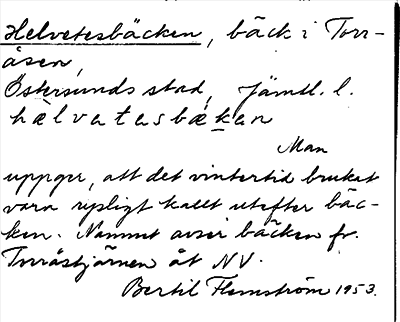 Helvetesbäcken, bäck i Torr-
åsen,
Östersunds stad, Jämtl. l.
hälvatasbäkan
Man
uppger, att det vintertid brukat
vara rysligt kallt utefter bäc-
ken. Namnet avser bäcken fr.
Torråstjärnen åt NV.
Bertil Flemström 1953.